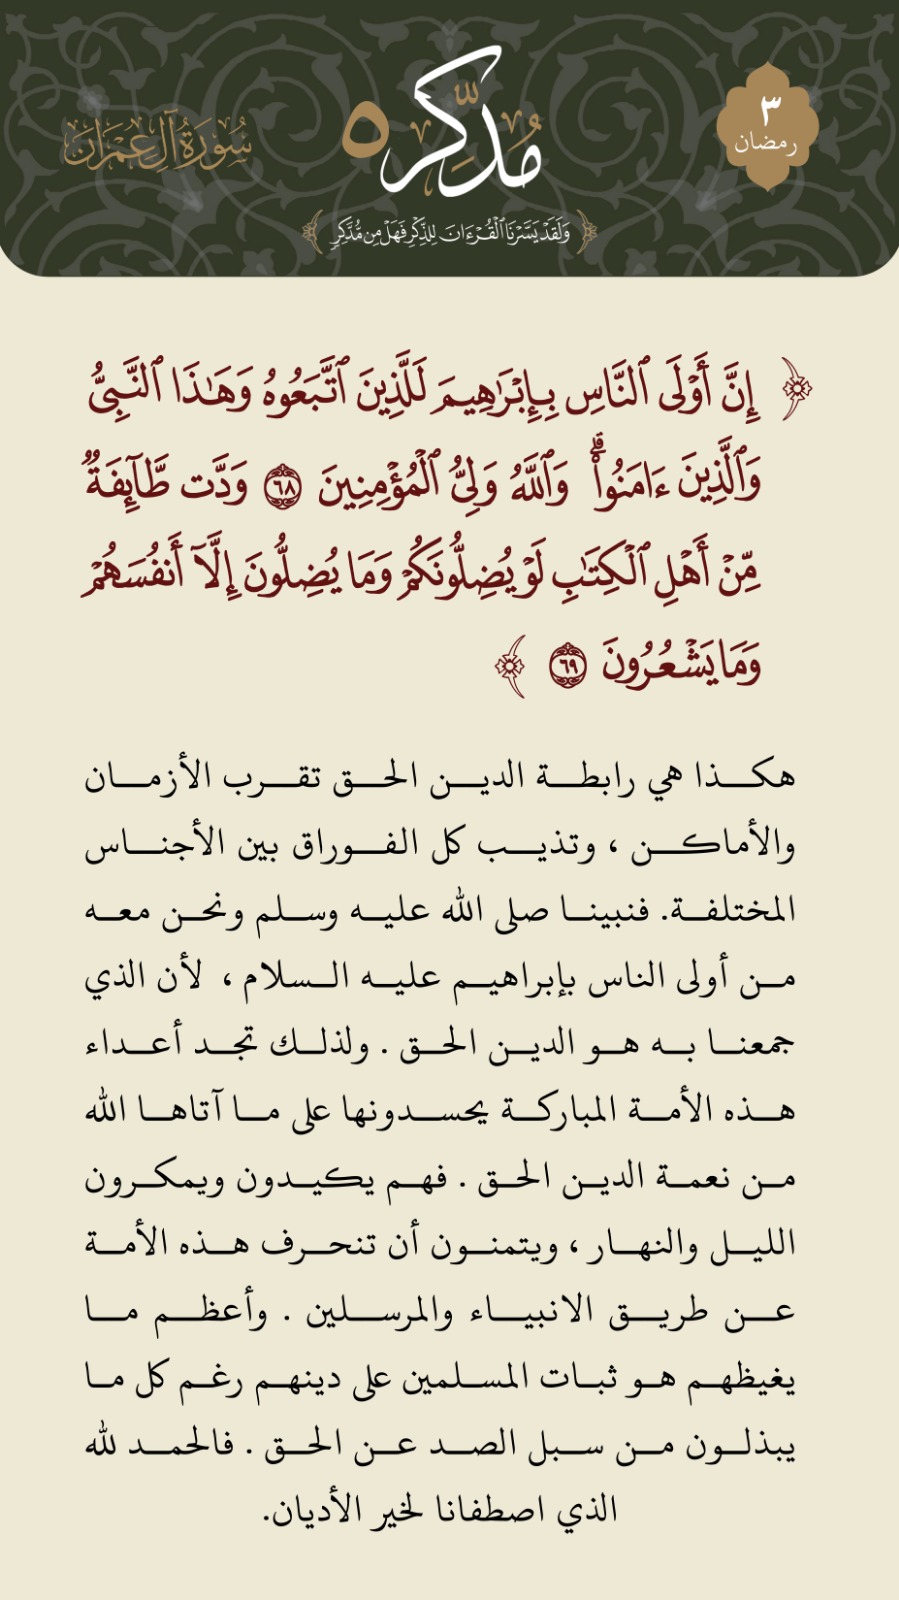 ٣
رمضان
مُدَّكِر ٥
سُورَةُ آلِ عِمْرَان
﴿وَلَقَدْ يَسَّرْنَا ٱلْقُرْءَانَ لِلذِّكْرِ فَهَلْ مِن مُّدَّكِرٍ﴾
﴿ إِنَّ أَوْلَى ٱلنَّاسِ بِإِبْرَٰهِيمَ لَلَّذِينَ ٱتَّبَعُوهُ وَهَـٰذَا ٱلنَّبِىُّ
وَٱلَّذِينَ ءَامَنُوا۟ ۗ وَٱللَّهُ وَلِىُّ ٱلْمُؤْمِنِينَ ٦٨ وَدَّت طَّآئِفَةٌ
مِّنْ أَهْلِ ٱلْكِتَـٰبِ لَوْ يُضِلُّونَكُمْ وَمَا يُضِلُّونَ إِلَّآ أَنفُسَهُمْ
وَمَا يَشْعُرُونَ ٦٩ ﴾
هكذا هي رابطة الدين الحق تقرب الأزمان
والأماكن ، وتذيب كل الفوراق بين الأجناس
المختلفة. فنبينا صلى الله عليه وسلم ونحن معه
من أولى الناس بإبراهيم عليه السلام ، لأن الذي
جمعنا به هو الدين الحق . ولذلك تجد أعداء
هذه الأمة المباركة يحسدونها على ما آتاها الله
من نعمة الدين الحق . فهم يكيدون ويمكرون
الليل والنهار ، ويتمنون أن تنحرف هذه الأمة
عن طريق الانبياء والمرسلين . وأعظم ما
يغيظهم هو ثبات المسلمين على دينهم رغم كل ما
يبذلون من سبل الصد عن الحق . فالحمد لله
الذي اصطفانا لخير الأديان.